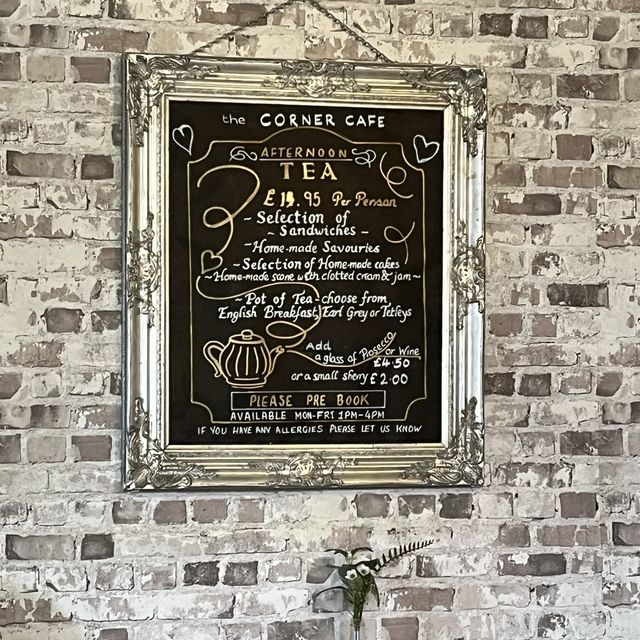 the CORNER CAFE
AFTERNOON
TEA
Per Person
~ Selection of
~ Sandwiches ~
~ Home-made Savouries
~ Selection of Home-made cakes
~ Home-made scone with clotted cream & jam ~
~ Pot of Tea - choose from
English Breakfast, Earl Grey or Tetleys
Add
a glass of Prosecco or Wine
£4.50
or a small sherry £2.00
PLEASE PRE BOOK
AVAILABLE MON-FRI 1PM-4PM
IF YOU HAVE ANY ALLERGIES PLEASE LET US KNOW